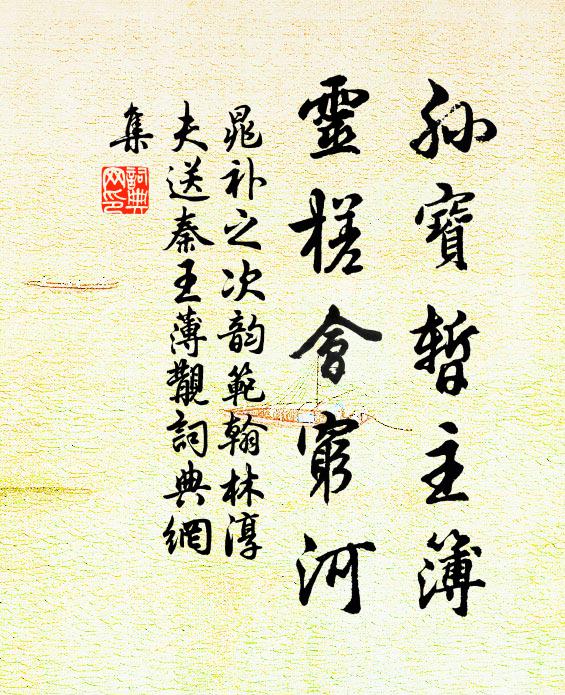 孫寶暫主簿
靈槎會窮河
晁补之次韵範翰林淳
夫送秦王薄觀詞典網
集
詞典
网印